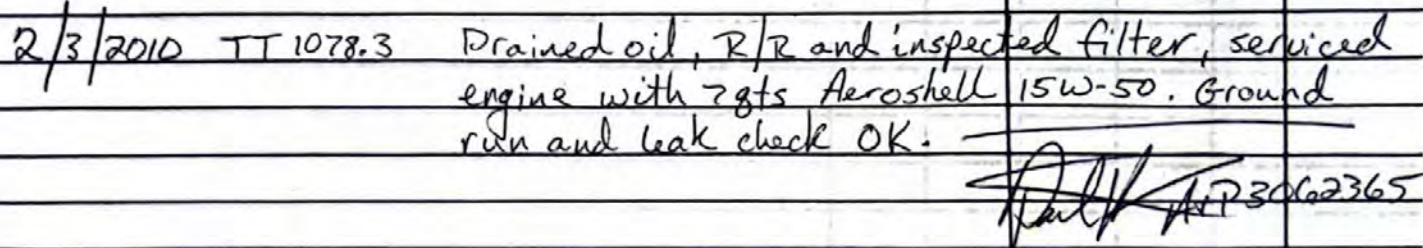 2/3/2010 TT 1078.3 Drained oil, R/R and inspected filter, serviced
engine with 7qts Aeroshell 15W-50. Ground
run and leak check OK.
A&P3062365